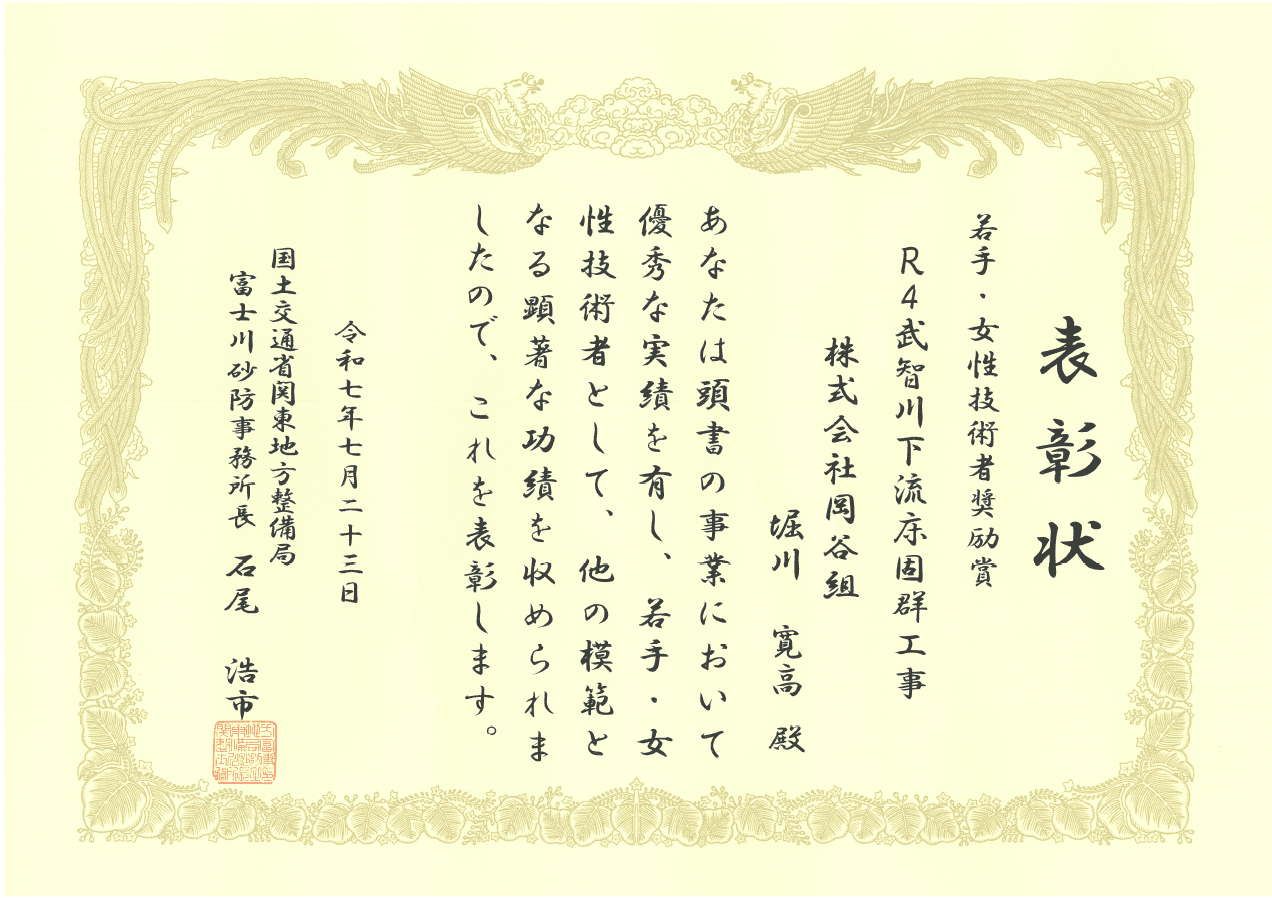 表彰状
若手・女性技術者奨励賞
R4武智川下流床固群工事
株式会社岡谷組
堀川 寛高 殿
あなたは頭書の事業において
優秀な実績を有し、若手・女
性技術者として、他の模範と
なる顕著な功績を収められま
したので、これを表彰します。
令和七年七月二十三日
国土交通省関東地方整備局
富士川砂防事務所長 石尾 浩市